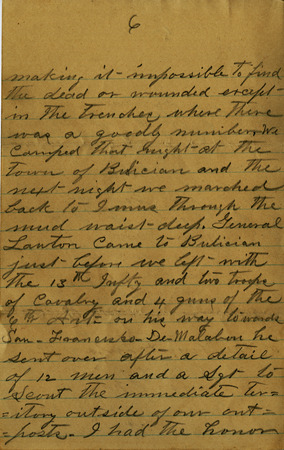 6
making it impossible to find
the dead or wounded except
in the trenches where there
was a goodly number, We
camped that night at the
town of Bulician and the
next night we marched
back to Imus through the
mud waist-deep. General
Lawton came to Bulician
just before we left with
the 13th Infty and two troops
of Cavalry and 4 guns of the
6th Art- on his way towards
San-Francisko-De-Malabon he
sent over after a detail
of 12 men and a Sgt to
scout the immediate ter=
=itory outside of our out=
=posts- I had the honor